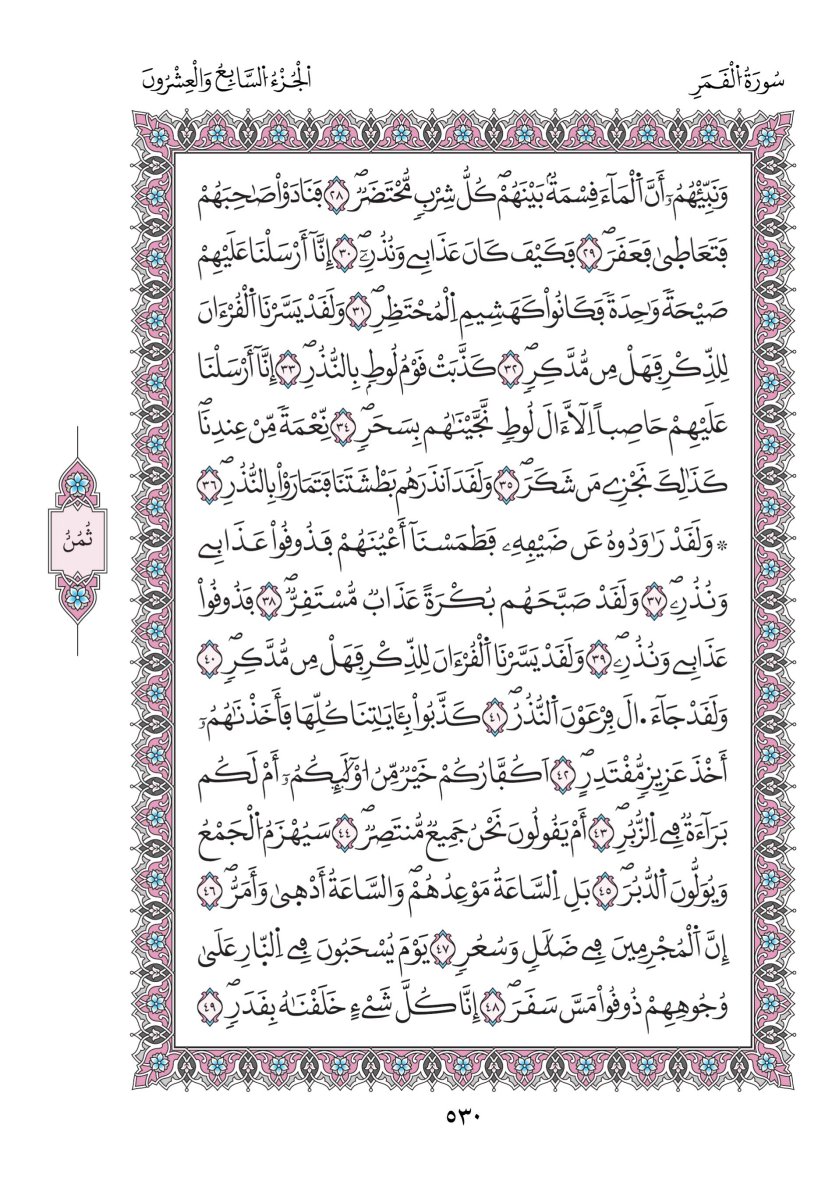 سُورَةُ اُ۬لْقَمَرِ
اَ۬لْجُزْءُ اُ۬لسَّابِعُ وَالْعِشْرُونَ
وَنَبِّيْهُمُۥٓ أَنَّ اَ۬لْمَآءَ فِسْمَةُۢ بَيْنَهُمْۖ كُلُّ شِرْبٖ مُّحْتَضَرٞۖ ٢٨ فَنَادَوْاْ صَٰحِبَهُمْ
فَتَعَاط۪ىٰ فَعَقَرَۖ ٢٩ فَكَيْفَ كَانَ عَذَابِے وَنُذُرِۦٓۖ ٣٠ إِنَّآ أَرْسَلْنَا عَلَيْهِمْ
صَيْحَةٗ وَٰحِدَةٗ فَكَانُواْ كَهَشِيمِ اِ۬لْمُحْتَظِرِۖ ٣١ وَلَقَدْ يَسَّرْنَا اَ۬لْقُرْءَانَ
لِلذِّكْرِ فَهَلْ مِن مُّدَّكِرٖۖ ٣٢ كَذَّبَتْ قَوْمُ لُوطِۢ بِالنُّذُرِۖ ٣٣ إِنَّآ أَرْسَلْنَا
عَلَيْهِمْ حَاصِباً اِلَّآ ءَالَ لُوطٖ نَّجَّيْنَٰهُم بِسَحَرٖۖ ٣٤ نِّعْمَةٗ مِّنْ عِندِنَاۖ
كَذَٰلِكَ نَجْزِے مَن شَكَرَۖ ٣٥ وَلَقَدَ اَنذَرَهُم بَطْشَتَنَا فَتَمَارَوْاْ بِالنُّذُرِۖ ٣٦
۞ وَلَقَدْ رَٰوَدُوهُ عَن ضَيْفِهِۦ فَطَمَسْنَآ أَعْيُنَهُمْ فَذُوقُواْ عَذَابِے
وَنُذُرِۦۖ ٣٧ وَلَقَدْ صَبَّحَهُم بُكْرَةً عَذَابٞ مُّسْتَقِرّٞۖ ٣٨ فَذُوقُواْ
عَذَابِے وَنُذُرِۦۖ ٣٩ وَلَقَدْ يَسَّرْنَا اَ۬لْقُرْءَانَ لِلذِّكْرِ فَهَلْ مِن مُّدَّكِرٖۖ ٤٠
وَلَقَدْ جَآءَ ا۬لَ فِرْعَوْنَ اَ۬لنُّذُرُۖ ٤١ كَذَّبُواْ بِـَٔايَٰتِنَا كُلِّهَا فَأَخَذْنَٰهُمُۥٓ
أَخْذَ عَزِيزٖ مُّقْتَدِرٖۖ ٤٢ اَكُفَّارُكُمْ خَيْرٞ مِّنُ ا۟وْلَٰٓئِكُمُۥٓ أَمْ لَكُم
بَرَآءَةٞ فِے اِ۬لزُّبُرِۖ ٤٣ أَمْ يَقُولُونَ نَحْنُ جَمِيعٞ مُّنتَصِرٞۖ ٤٤ سَيُهْزَمُ اُ۬لْجَمْعُ
وَيُوَلُّونَ اَ۬لدُّبُرَۖ ٤٥ بَلِ اِ۬لسَّاعَةُ مَوْعِدُهُمْۖ وَالسَّاعَةُ أَدْه۪ىٰ وَأَمَرُّۖ ٤٦
إِنَّ اَ۬لْمُجْرِمِينَ فِے ضَلَٰلٖ وَسُعُرٖۖ ٤٧ يَوْمَ يُسْحَبُونَ فِے اِ۬لنّ۪ارِ عَلَىٰ
وُجُوهِهِمْ ذُوقُواْ مَسَّ سَقَرَۖ ٤٨ إِنَّا كُلَّ شَےْءٍ خَلَقْنَٰهُ بِقَدَرٖۖ ٤٩
ثُمُنُ
٥٣٠